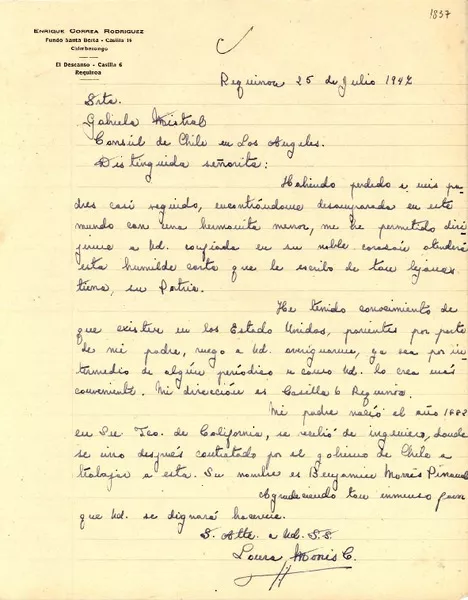 1837
ENRIQUE CORREA RODRIGUEZ
Fundo Santa Berta - Casilla 18
El Descanso - Casilla 6
Requinoa
Requinoa 25 de Julio 1947
Srta.
Gabriela Mistral
Consul de Chile en Los Angeles.
Distinguida señorita:
Habiendo perdido a mis pa-
dres casi seguido, encontrándome desamparada en este
mundo con una hermanita menor, me he permitido diri-
jirme a Ud. confiada en su noble corazón atenderá
esta humilde carta que le escribo de tan lejanas
tierra, su Patria.
He tenido conocimiento de
que existen en los Estado Unidos, parientes por parte
de mi padre, ruego a Ud. averiguarme, ya sea por in-
termedio de algún periódico o como Ud. lo crea más
conveniente. Mi dirección es Casilla 6 Requinoa.
Mi padre nació el año 1882
en Sn Fco. de California, se recibió de ingeniero, donde
se vino después contratado por el gobierno de Chile a
trabajar a esta. Su nombre es Benjamin Morris
Agradeciendo tan inmenso favor
que Ud. se dignará hacerme.
S. Atte. a Ud. S.S.
Laura Morris C.